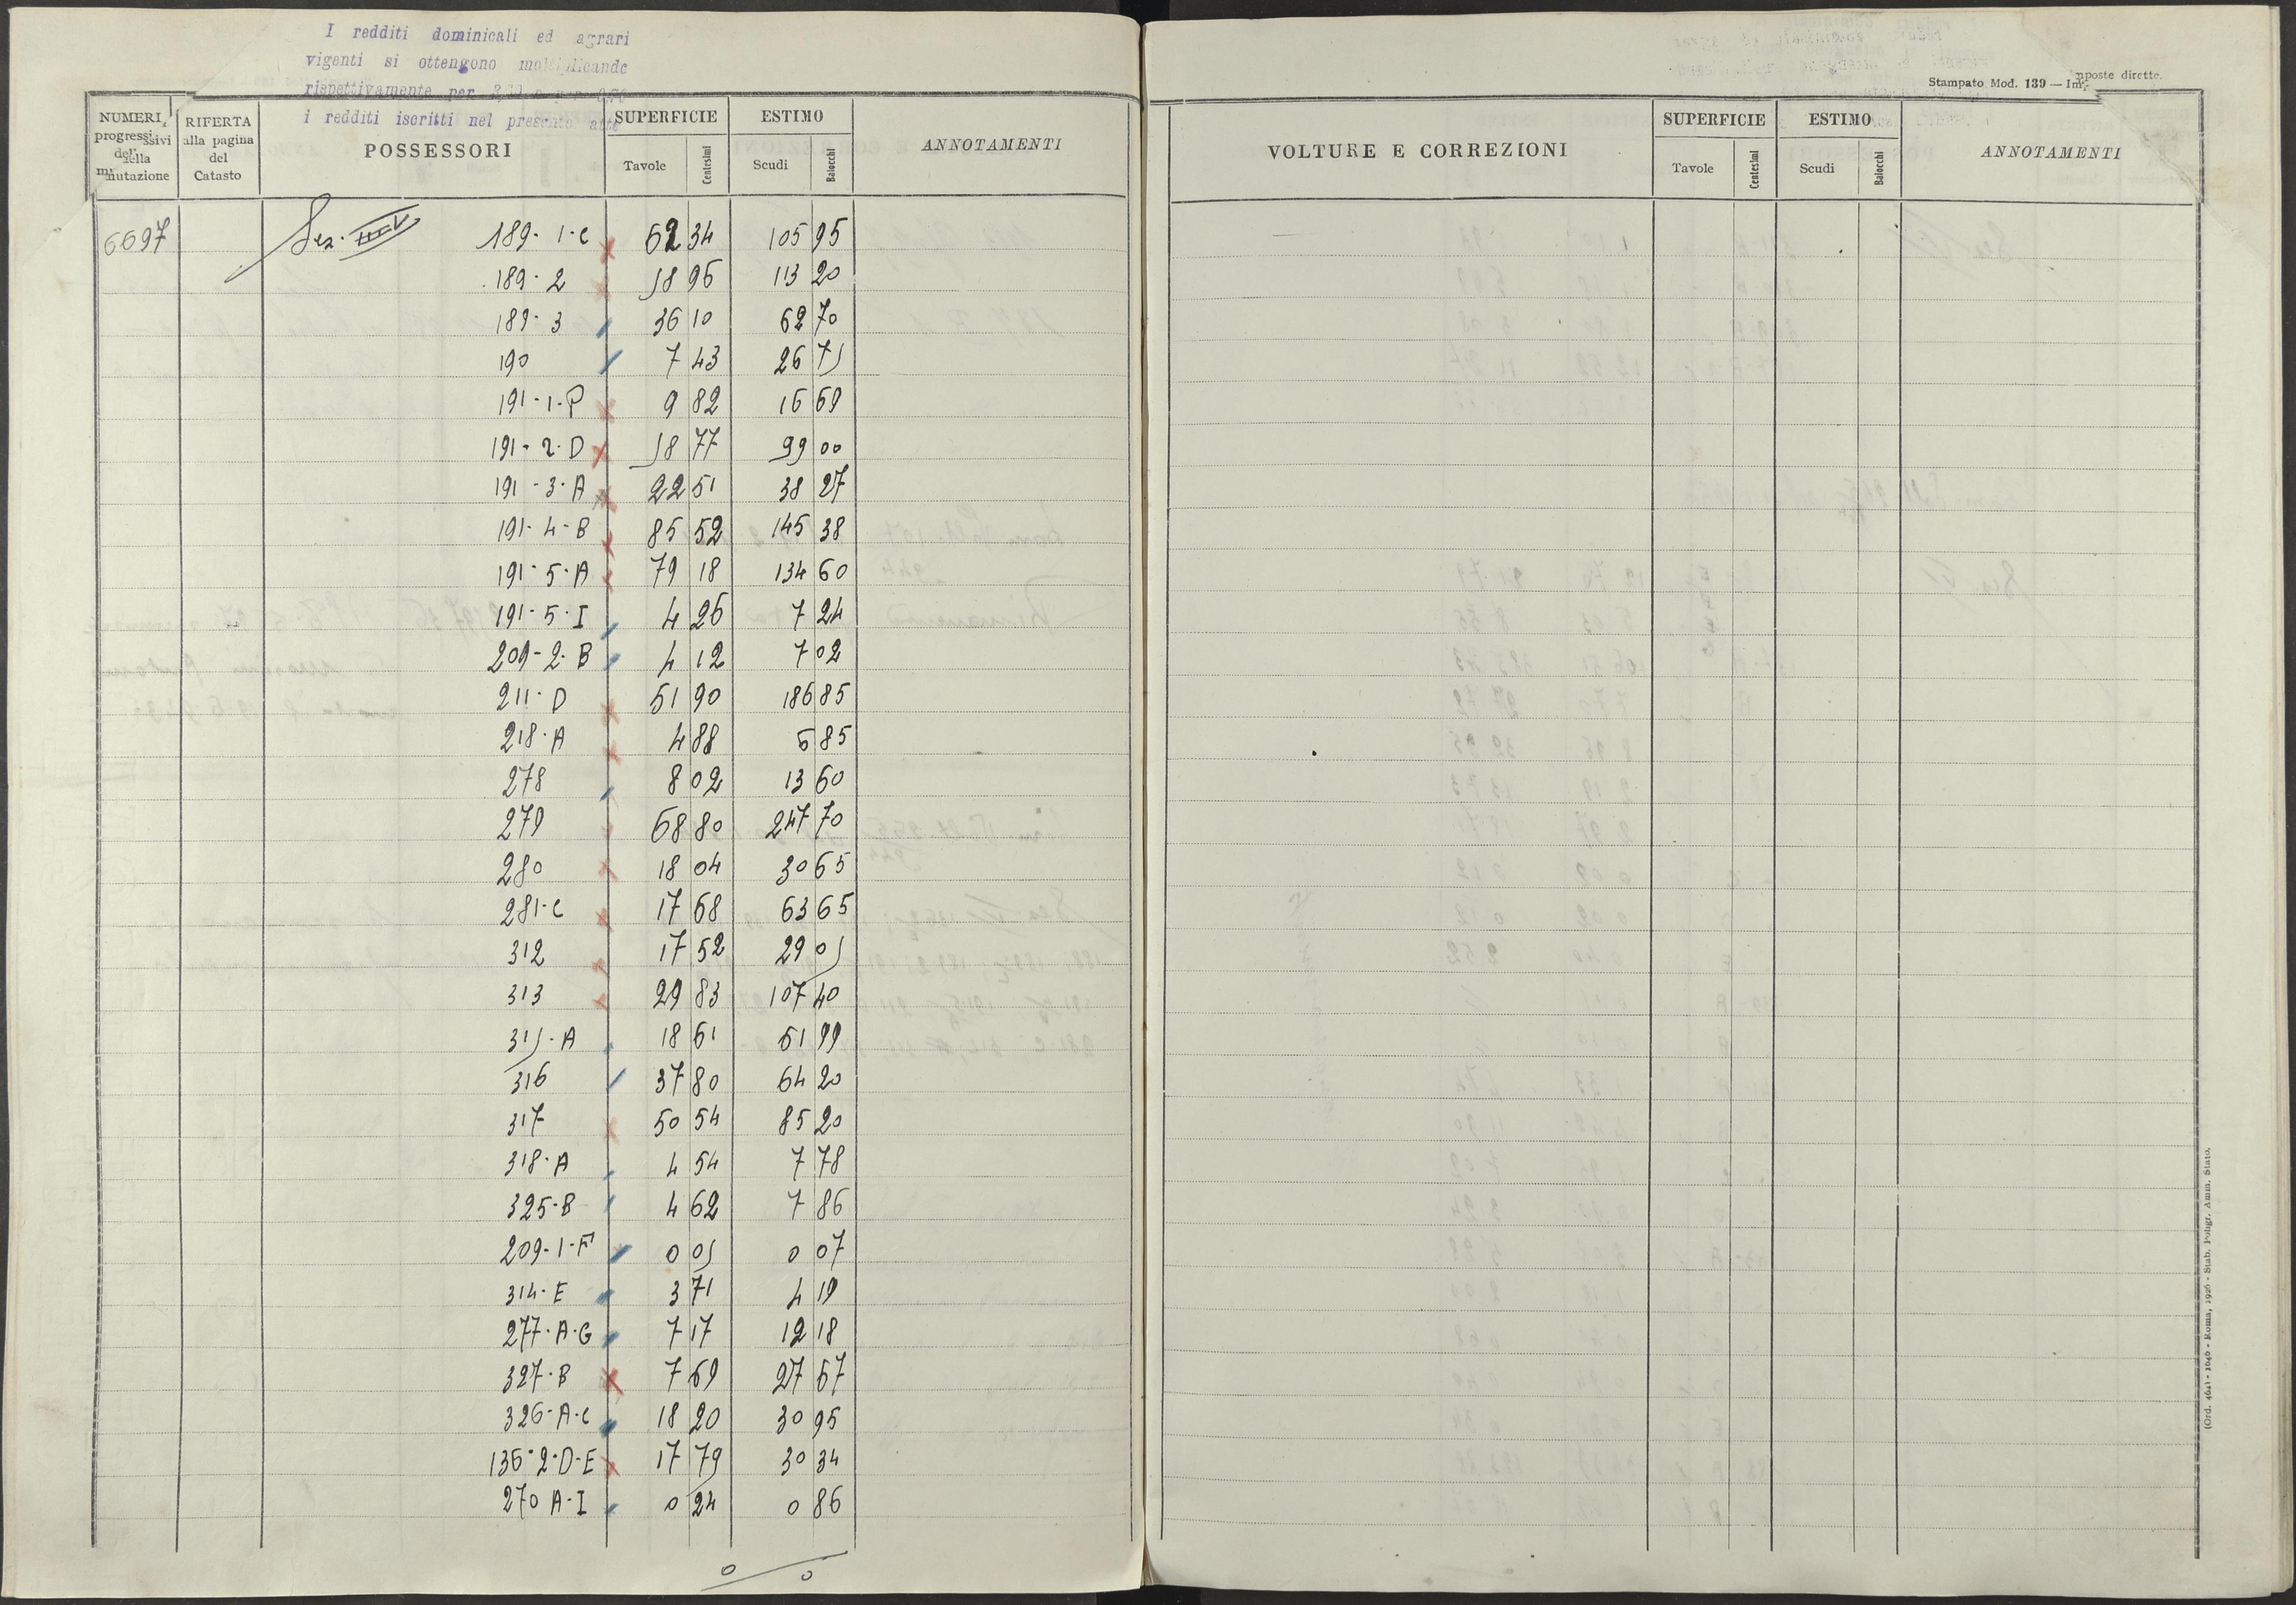 I redditi dominicali ed agrari
vigenti si ottengono moltiplicando
rispettivamente per
i redditi iscritti nel presente atto
NUMERI progressivi della mutazione | RIFERTA alla pagina del Catasto | POSSESSORI | SUPERFICIE Tavole Centesimi | ESTIMO Scudi Baiocchi | ANNOTAMENTI
6697 Sez. 189-1-C 62 34 105 95
189-2 58 96 113 20
189-3 36 10 62 70
190 7 43 26 75
191-1-P 9 82 16 69
191-2-D 58 77 99 00
191-3-A 22 51 38 27
191-4-B 85 52 145 38
191-5-A 79 18 134 60
191-5-I 4 26 7 24
209-2-B 4 12 7 02
211-D 51 90 186 85
218-A 4 88 6 85
278 8 02 13 60
279 68 80 247 70
280 18 04 30 65
281-C 17 68 63 65
312 17 52 29 05
313 29 83 107 40
315-A 18 61 51 99
316 37 80 64 20
317 50 54 85 20
318-A 4 54 7 78
325-B 4 62 7 86
209-1-F 0 05 0 07
314-E 3 71 4 19
277-A-G 7 17 12 18
327-B 7 69 27 67
326-A-C 18 20 30 95
136-2-D-E 17 79 30 34
270 A-I 0 24 0 86
Stampato Mod. 139 — Imposte dirette.
VOLTURE E CORREZIONI | SUPERFICIE Tavole Centesimi | ESTIMO Scudi Baiocchi | ANNOTAMENTI
(Ord. 464) - 1646 - Roma, 1926 - Stab. Poligr. Amm. Stato.